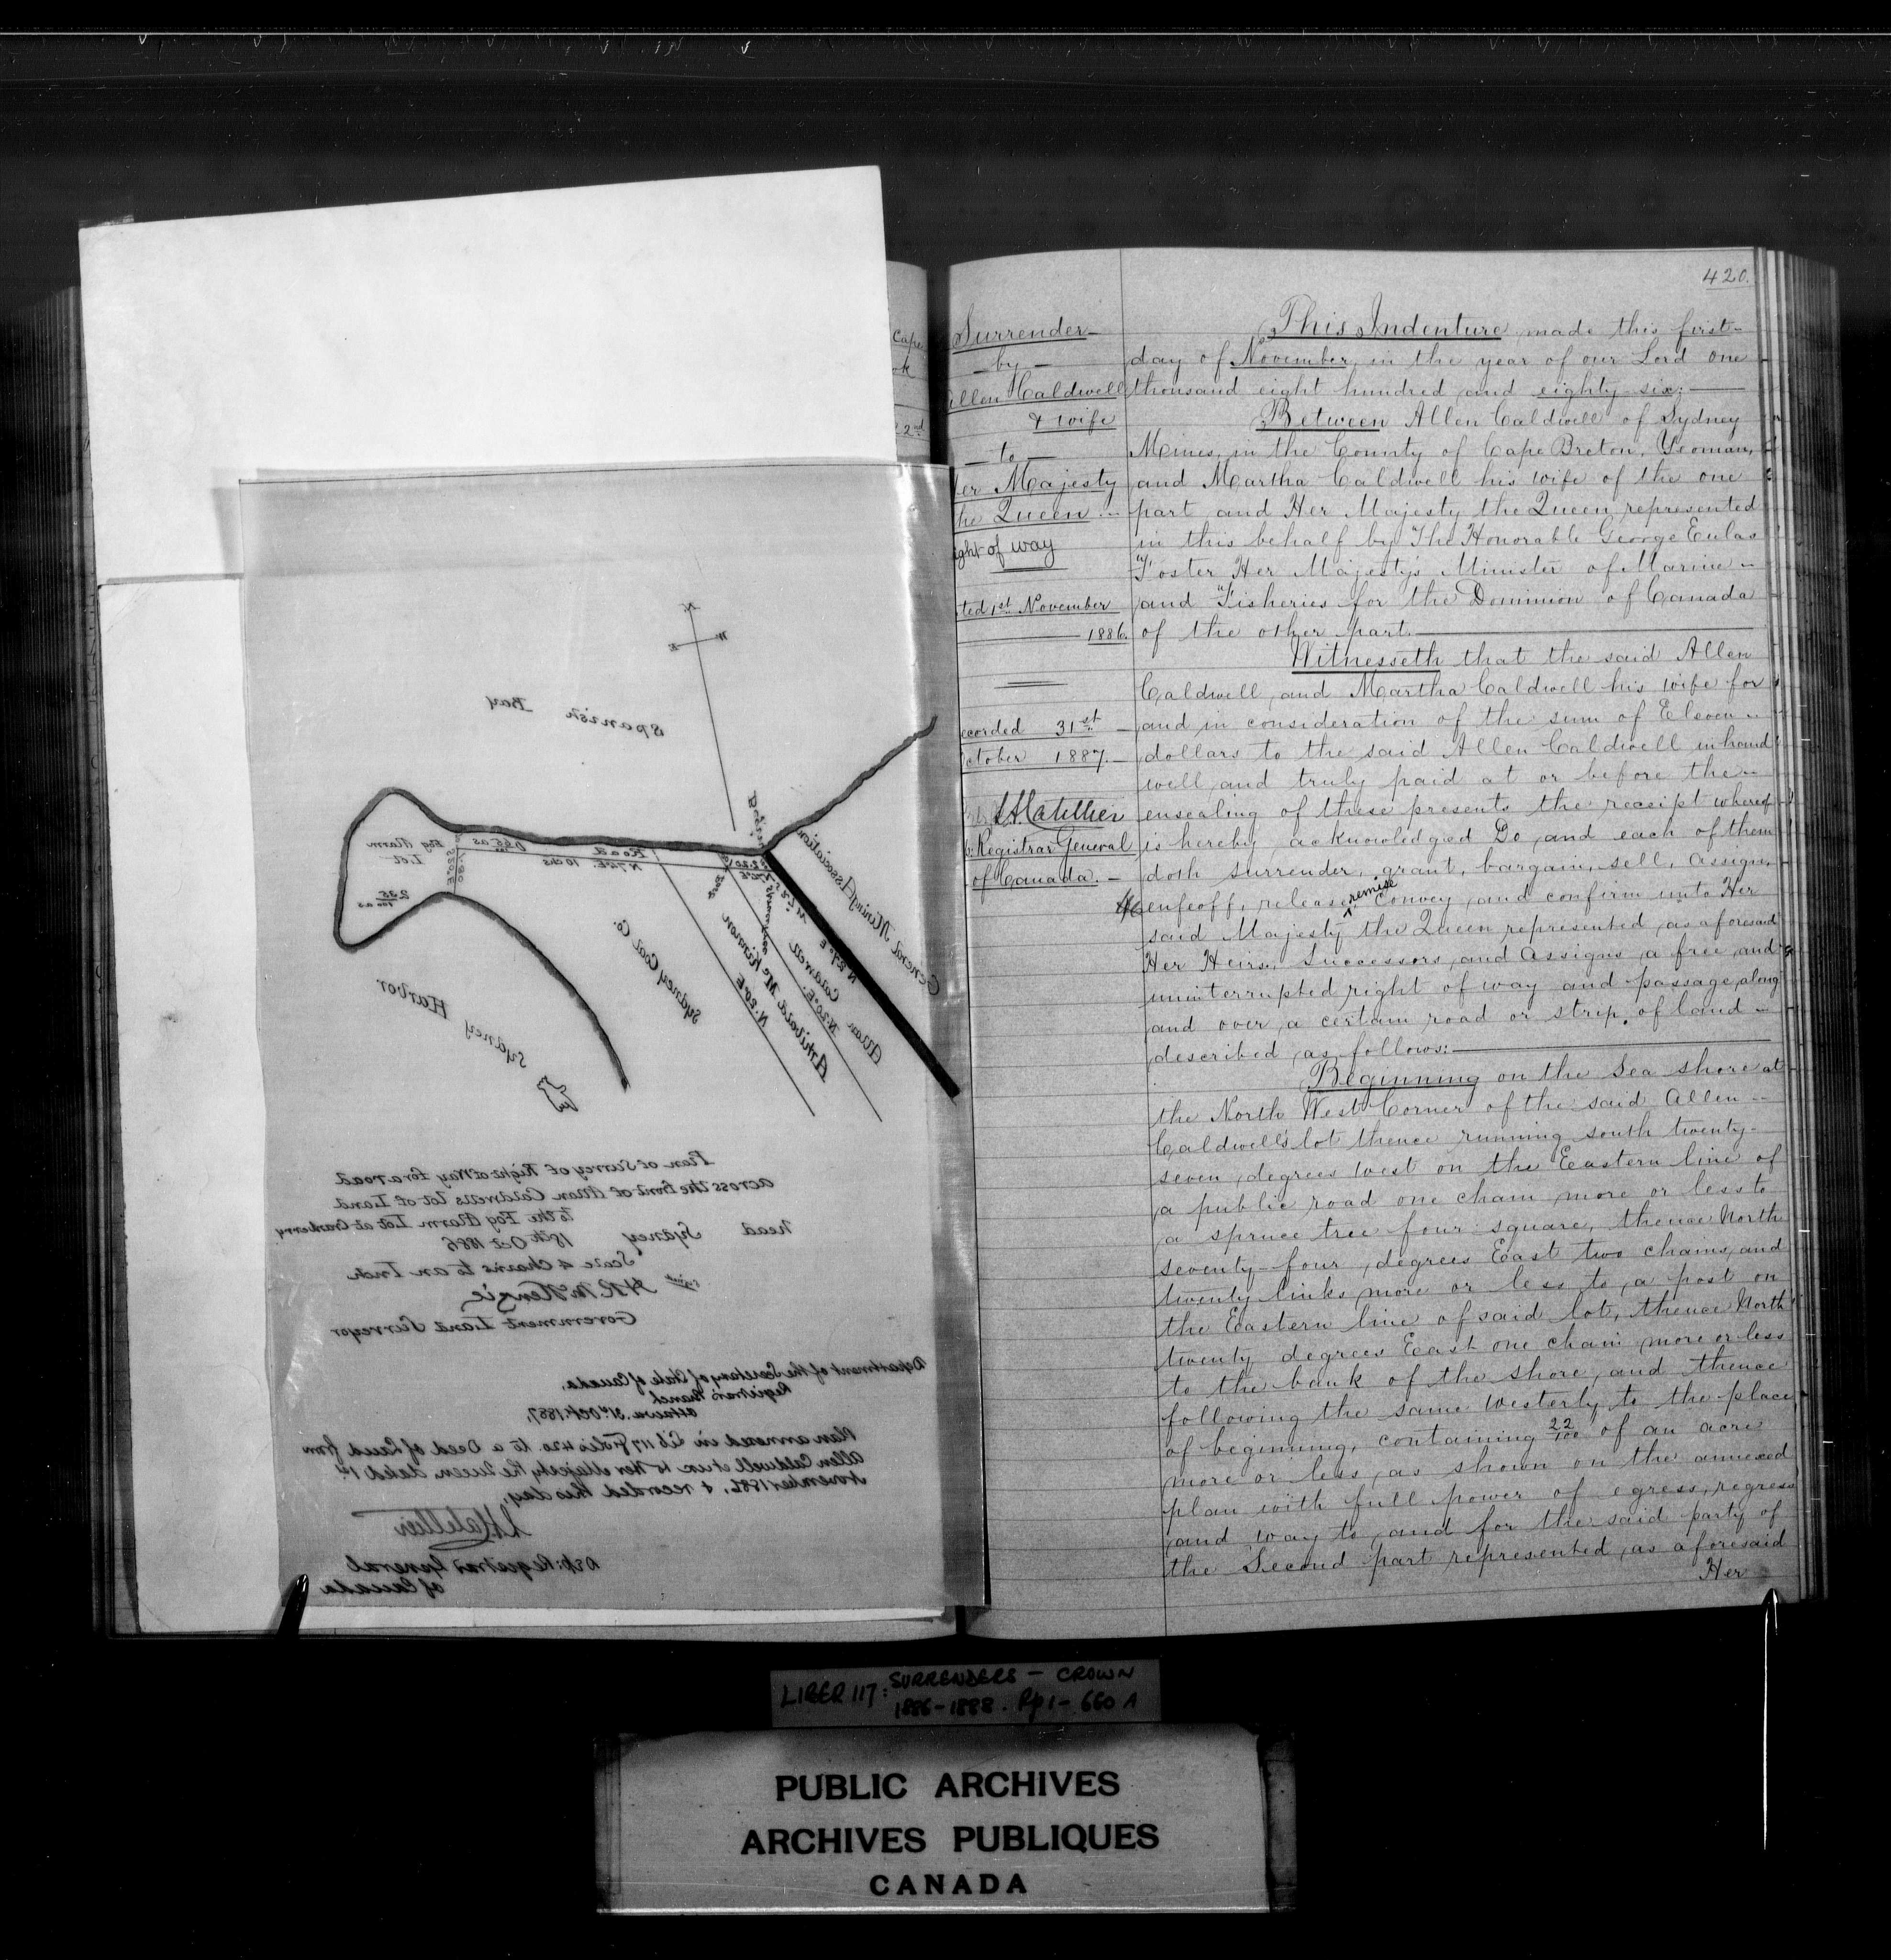 420.
Surrender
by
Allen Caldwell
& wife
to
Her Majesty
the Queen
right of way
dated 1st November
1886.
Recorded 31st
October 1887.
Registrar General
of Canada.
This Indenture made this first
day of November, in the year of our Lord one
thousand eight hundred and eighty six;
Between Allen Caldwell of Sydney
Mines, in the County of Cape Breton, Yeoman,
and Martha Caldwell his wife of the one
part and Her Majesty the Queen, represented
in this behalf by The Honorable George Eulas
Foster Her Majesty's Minister of Marine
and Fisheries for the Dominion of Canada
of the other part.
Witnesseth that the said Allen
Caldwell and Martha Caldwell his wife for
and in consideration of the sum of Eleven
dollars to the said Allen Caldwell in hand
well and truly paid at or before the
ensealing of these presents the receipt whereof
is hereby acknowledged Do and each of them
doth surrender, grant, bargain, sell, assign,
enfeoff, release, remise convey and confirm unto Her
said Majesty the Queen represented as aforesaid
Her Heirs, Successors and Assigns a free and
uninterrupted right of way and passage along
and over a certain road or strip of land
described as follows:
Beginning on the Sea shore at
the North West Corner of the said Allen
Caldwell's lot thence running south twenty-
seven degrees West on the Eastern line of
a public road one chain more or less to
a spruce tree four square, thence North
seventy-four degrees East two chains and
twenty links more or less to a post on
the Eastern line of said lot, thence North
twenty degrees East one chain more or less
to the bank of the shore, and thence
following the same Westerly to the place
of beginning, containing 22/100 of an acre
more or less, as shown on the annexed
plan with full power of egress, regress
and way to and for the said party of
the Second part represented as aforesaid
Her
Spanish Bay
General Mining Association
Fog Alarm
Lot
235/100 as
Road
N 74 E 10 chs
N 27° E
Allan Caldwell
N. 20° E.
Archibald McKinnon
N. 20° E
Sydney Coal Co.
Sydney Harbor
Plan of Survey of Right of Way for a road
across the front of Allan Caldwells lot of Land
to the Fog Alarm Lot at Cranberry
head Sydney 18th Oct 1886
Scale 4 Chains to an Inch
signed H.R. McKenzie
Government Land Surveyor
Department of the Secretary of State of Canada,
Registrar's Branch
Ottawa. 31st Oct. 1887.
Plan annexed in Lib 117 Folio 420 to a Deed of Land from
Allen Caldwell et ux to Her Majesty the Queen, dated 1st
November 1886, & recorded this day,
Dep: Registrar General
of Canada
LIBER 117: SURRENDERS - CROWN
1886-1888. Pp 1-660 A
PUBLIC ARCHIVES
ARCHIVES PUBLIQUES
CANADA